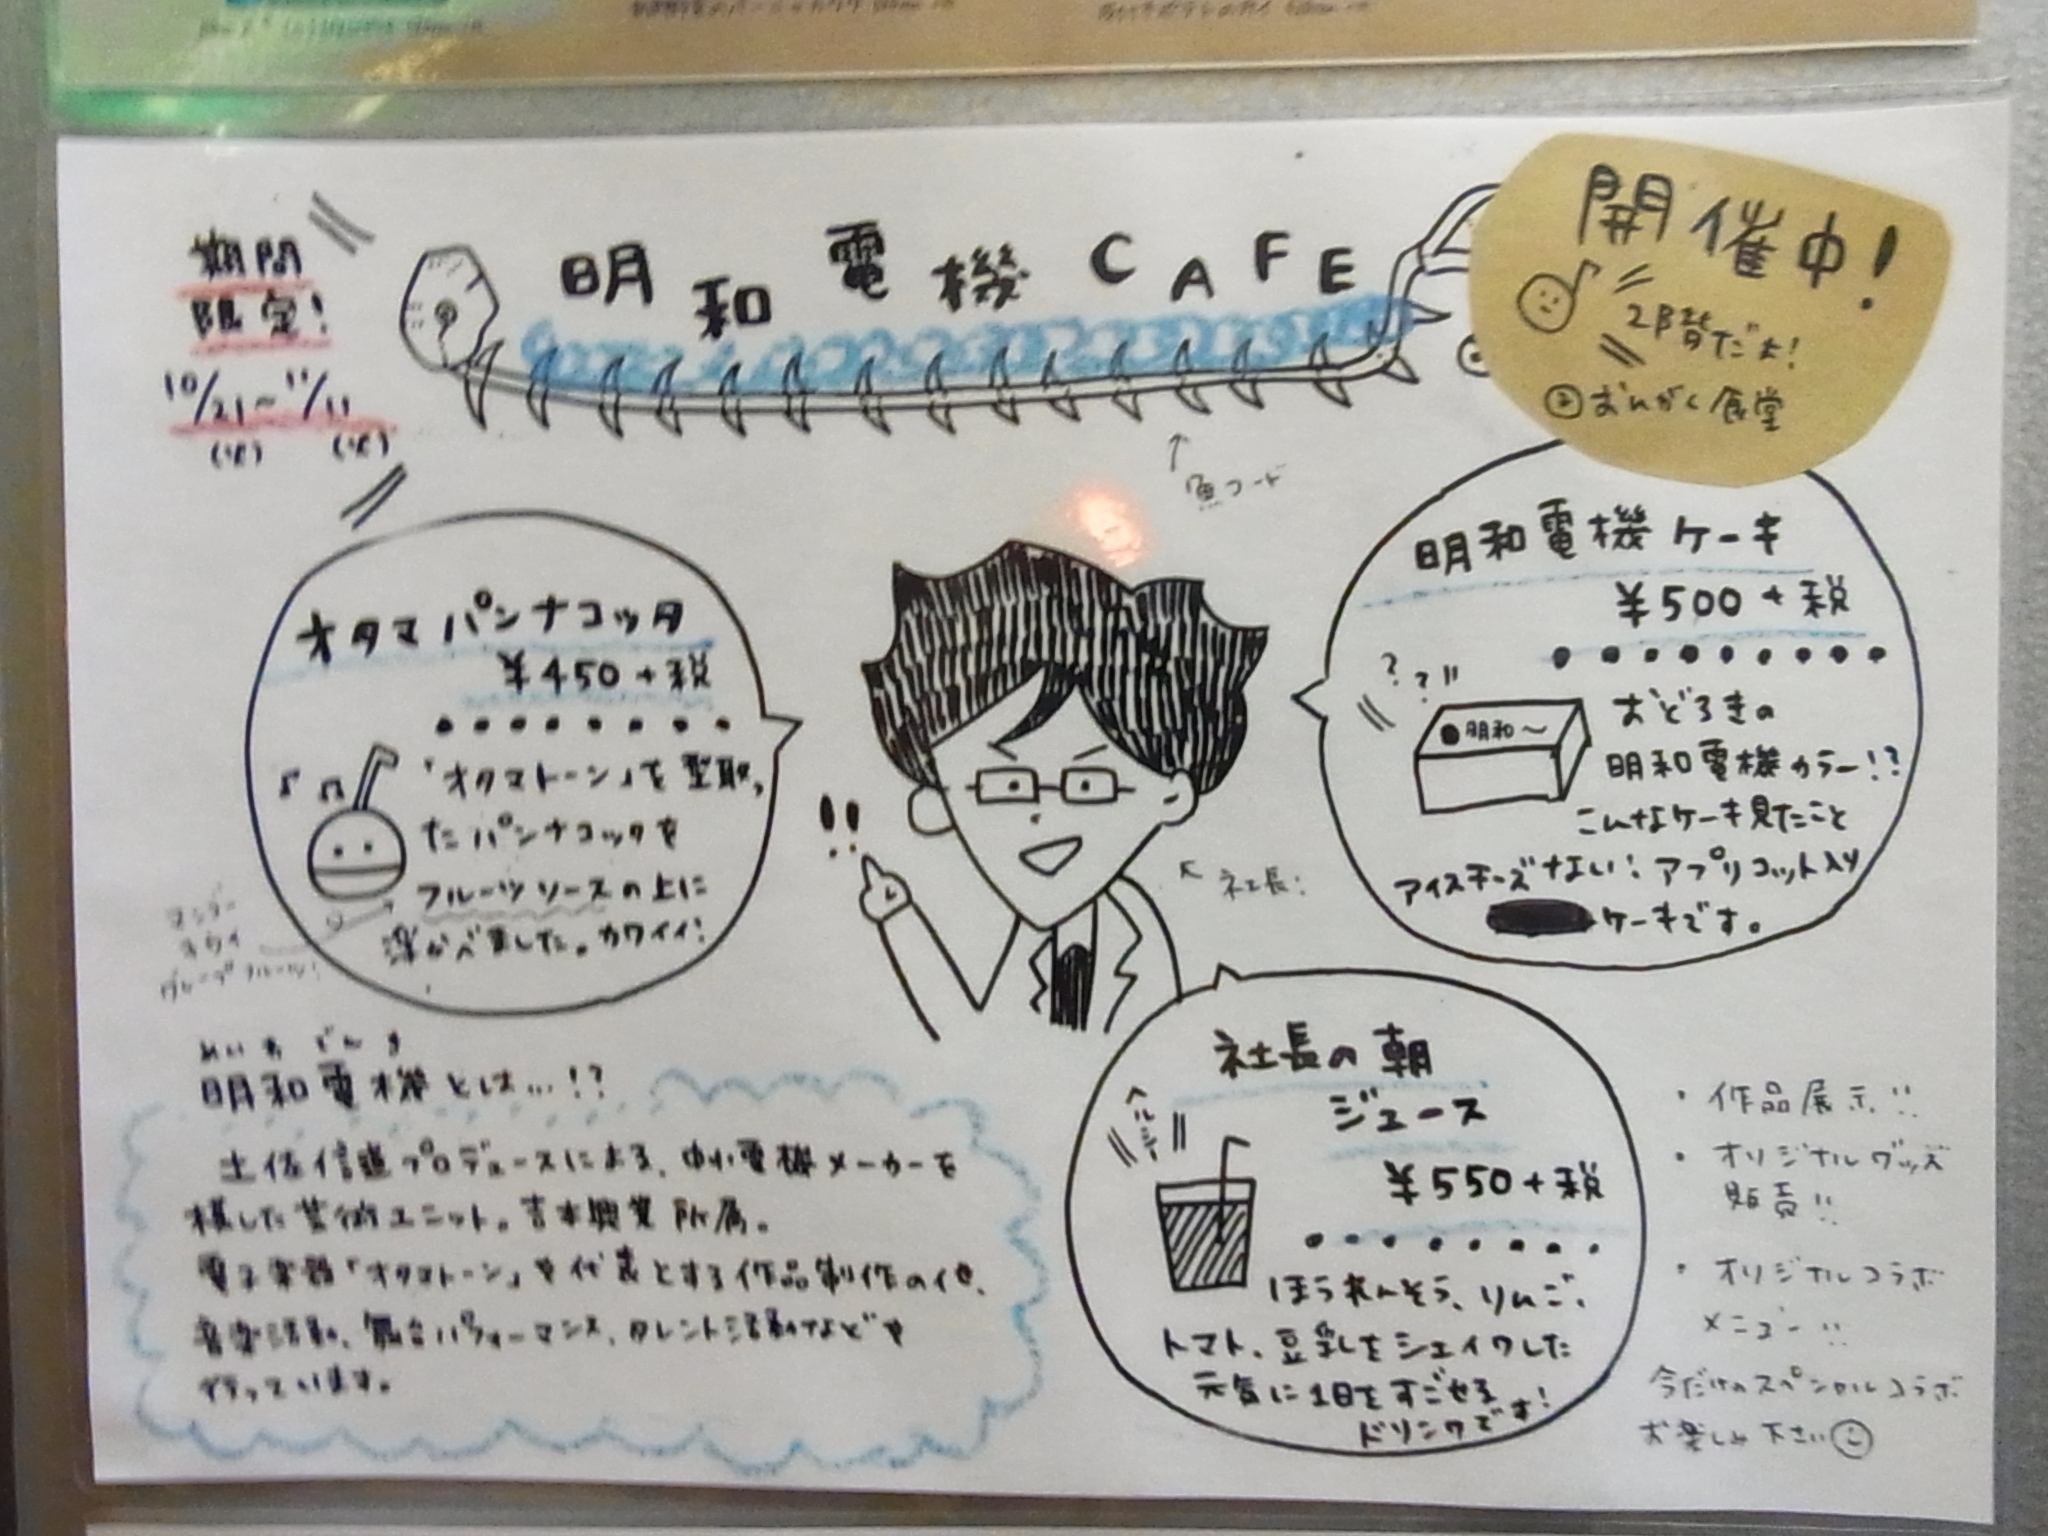 期間
限定!
10/21〜11/11
明和電機CAFE
開催中!
2階だよ!
おんがく食堂
魚コード
オタマパンナコッタ
¥450+税
「オタマトーン」を型取っ
たパンナコッタを
フルーツソースの上に
浮かべました。カワイイ!
マンゴー
キウイ
グレープフルーツ!
!!
社長!
明和電機ケーキ
¥500+税
??
明和〜
おどろきの
明和電機カラー!?
こんなケーキ見たこと
ない! アプリコット入り
アイスチーズ
ケーキです。
社長の朝
ジュース
¥550+税
ヘルシー
ほうれんそう、りんご、
トマト、豆乳をシェイクした
元気に1日をすごせる
ドリンクです!
めいわでんき
明和電機とは…!?
土佐信道プロデュースによる、中小電機メーカーを
模した芸術ユニット。吉本興業所属。
電子楽器「オタマトーン」を代表とする作品制作の他、
音楽活動、舞台パフォーマンス、タレント活動などを
行っています。
・作品展示!!
・オリジナルグッズ
販売!!
・オリジナルコラボ
メニュー!!
今だけのスペシャルコラボ
お楽しみ下さい